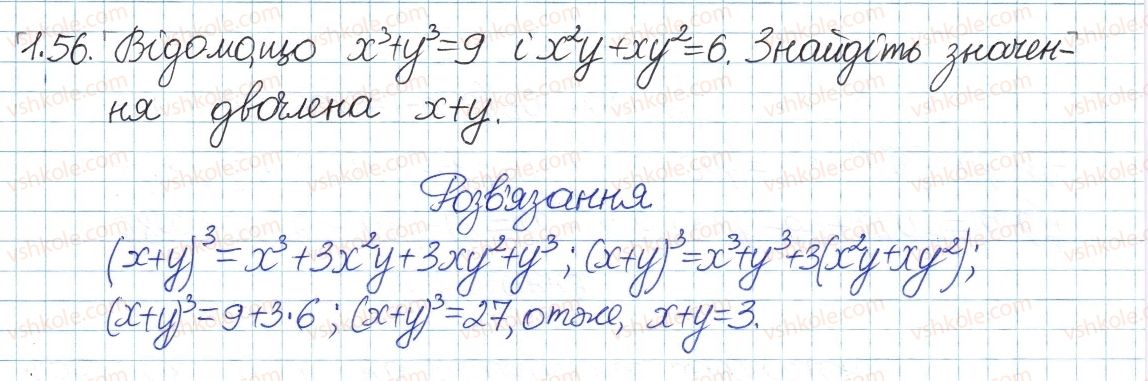 1.56. Відомо,що x³+y³=9 і x²y+xy²=6. Знайдіть значен-
ня двочлена x+y.
Розв'язання
(x+y)³=x³+3x²y+3xy²+y³; (x+y)³=x³+y³+3(x²y+xy²);
(x+y)³=9+3·6; (x+y)³=27, отже, x+y=3.